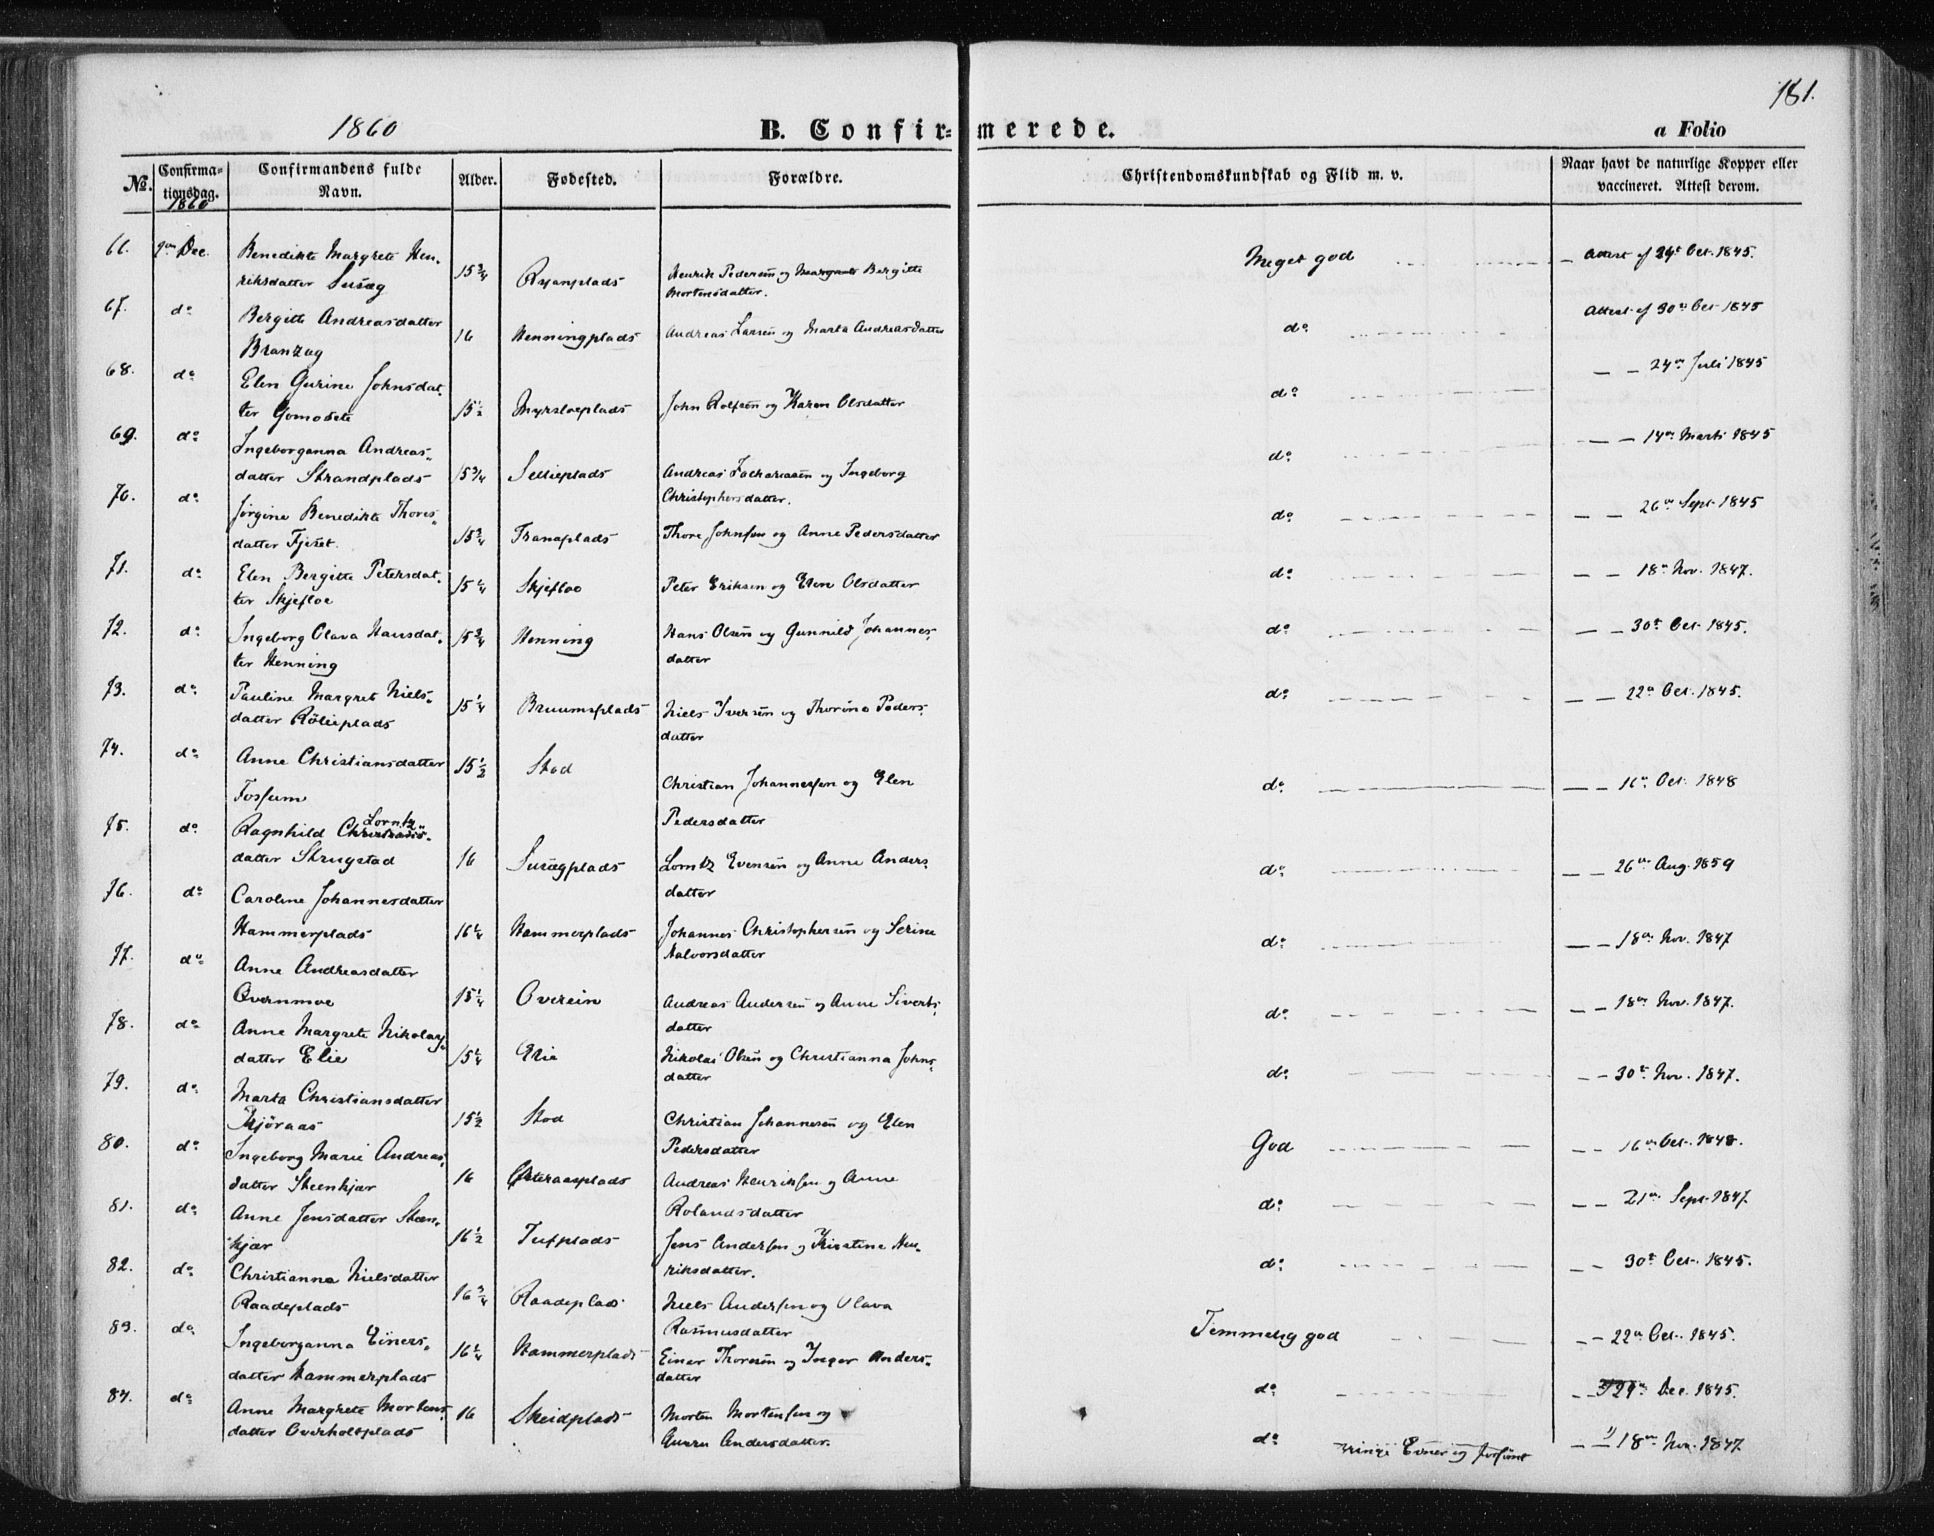 181.
1860
B. Confirmerede.
a Folio
No.
Confirmationsdag.
Confirmandens fulde Navn.
Alder.
Fødested.
Forældre.
Christendomskundskab og Flid m. v.
Naar havt de naturlige Kopper eller vaccineret. Attest derom.
1860
66. 9de Dec. Benedikte Margrete Hen- 15 3/4 plads Henrik Pedersen og Bergitte Meget god Attest af Oct. 1845.
riksdatter Susæg Mortensdatter.
67. do Bergitte Andreasdatter 16 Henningplads Andreas Larsen og Marta Andreasdatter do Attest af 30te Oct 1845
Branzag
68. do Elen Gurine Johnsdat- 15 1/2 Myrsloeplads John Rolfsen og Karen Olsdatter do — — 24de Juli 1845
ter
69. do Ingeborganna Andreas- 15 3/4 Sellieplads Andreas Zachariasen og Ingeborg do — — 14de Marts 1845
datter Strandplads Christophersdatter.
70. do Jørgine Benedikte Thores- 15 3/4 Tranaplads Thore Johnsen og Anne Pedersdatter do — — 26de Sept. 1845
datter Fjeset.
71. do Elen Bergitte Petersdat- 15 1/4 Skjefloe Peter Eriksen og Elen Olsdatter do — — 18de Nov. 1847.
ter Skjefloe
72. do Ingeborg Olava Hansdat- 15 3/4 Henning Hans Olsen og Gunnild Johannes- do — — 30te Oct. 1845.
ter Henning datter
73. do Pauline Margret Niels- 15 1/4 Bruumsplads Niels Iversen og Thorine Peders- do — — 22de Oct. 1845.
datter Rølieplads datter
74. do Anne Christiansdatter 15 1/2 Stod Christian Johannessen og Elen do — — 16de Oct. 1848
Fossum Pedersdatter
75. do Ragnhild Lorntz- 16 Susægplads Lorntz Evensen og Anne Anders- do — — 26de Aug. 1859
datter Strugstad datter
76. do Caroline Johannesdatter 16 1/4 Hammerplads Johannes Christophersen og Serine do — — 18de Nov. 1847
Hammerplads Halvorsdatter
77. do Anne Andreasdatter 15 1/4 Overein Andreas Andersen og Anne Siverts- do — — 18de Nov. 1847.
Overnmoe datter
78. do Anne Margrete Nikolay- 15 1/4 Elie Nikolai Olsen og Christianna Johns- do — — 30te Nov. 1847.
datter Elie datter
79. do Marta Christiansdatter 15 1/2 Stod Christian Johannesen og Elen God — — 16de Oct. 1848.
Kjøraas Pedersdatter
80. do Ingeborg Marie Andreas- 16 Østeraasplads Andreas Henriksen og Anne do — — 21de Sept. 1847.
datter Steenkjær Rolandsdatter
81. do Anne Jensdatter Steen- 16 1/2 Tufplads Jens Andersen og Kirstine Hen- do — — 30te Oct. 1845.
kjær riksdatter.
82. do Christianna Nielsdatter 16 3/4 Raadeplads Niels Andersen og Olava Temmelig god — — 22de Oct. 1845.
Raadeplads Rasmusdatter
83. do Ingeborganna Einers- 16 1/4 Hammerplads Einer Thoresen og Inger Anders- do — — Dec. 1845.
datter Hammerplads datter
84. do Anne Margrete Mortens- 16 Skeidplads Morten Mortensen og do ringe Evner og — — 18de Nov. 1847
datter Overholtsplads Guru Andersdatter.